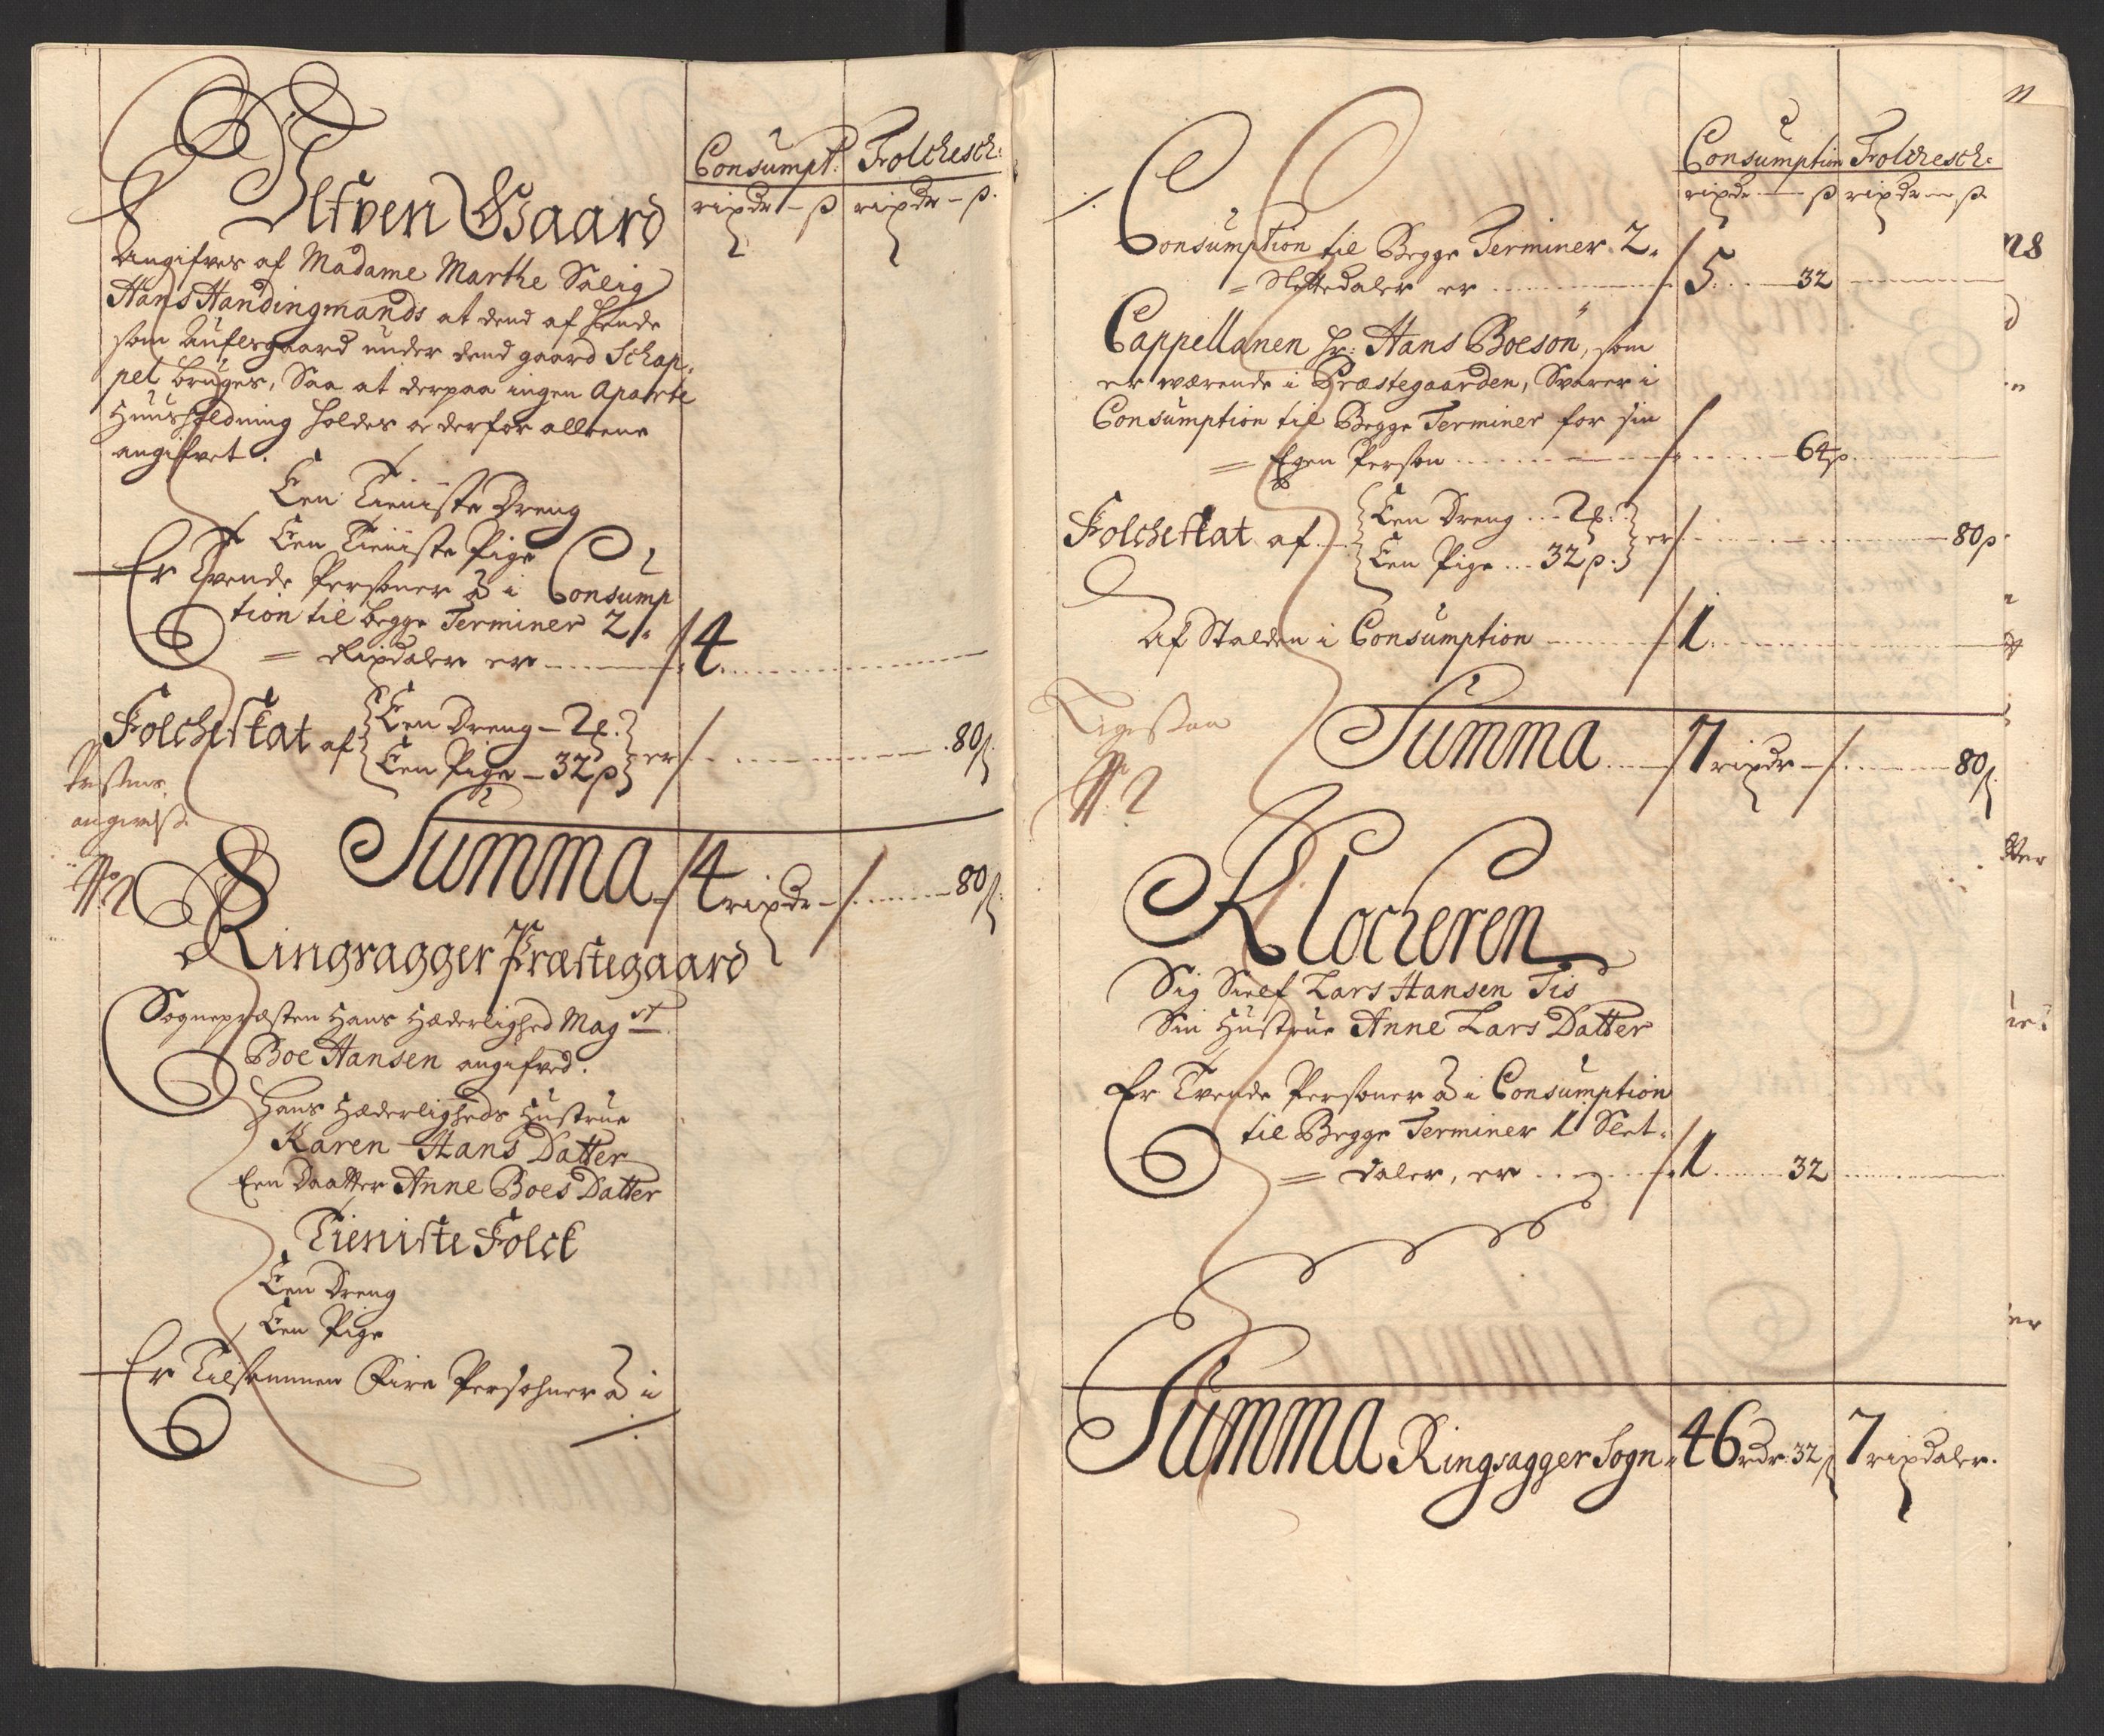 Consumpt: Folchesch:
ripdr – ß ripdr – ß.
Gaard
Angifves af Madame Marthe Salig
Hans Handingmands at dend af hende
som Auflsgaard under dend gaard Schap,
pel bruges, Saa at derpaa ingen Aparte
Huusholdning holdes er derfor alleene
angifvet.
Een Tieniste Dreng
Een Tieniste Pige
Er Tvende Personer à i Consump
tion til begge Terminer 2
= Ripdaler er 4
Folcheskat af Een Dreng – 2
Een Pige – 32 ß er 80ß.
Summa 4 ripdr – 80ß.
No 2
Ringsagger Præstegaard
Sognepræsten Hans Hæderlighed Mag st.
Boe Hansen angifved.
Hans Hæderligheds Hustrue
Karen Hans Datter
Een Daatter Anne Boes Datter
Tieniste Folck
Een Dreng
Een Pige
Er Tilsammen Fire Persohner à i
Consumption Folchesch:
ripdr – ß ripdr – ß
Consumption til Begge Terminer 2.
= Slettedaler er 5 32
Cappellanen Hr: Hans Boesøn, som
er værende i Præstegaarden, Svarer i
Consumption til Begge Terminer for sin
= Egen Person 64ß
Folcheskat af Een Dreng ... 2
Een Pige ... 32 ß. er 80ß.
Af Stalden i Consumption 1
Summa 7 ripdr – 80ß.
No 2
Klocheren
Sig Sielf Lars Hansen Tis
Sin Hustrue Anne Lars Datter
Er Tvende Personer à i Consumption
til Begge Terminer 1 Slet:
= daler, er 1 32
Summa Ringsagger Sogn 46 rdr 32ß 7 ripdaler.